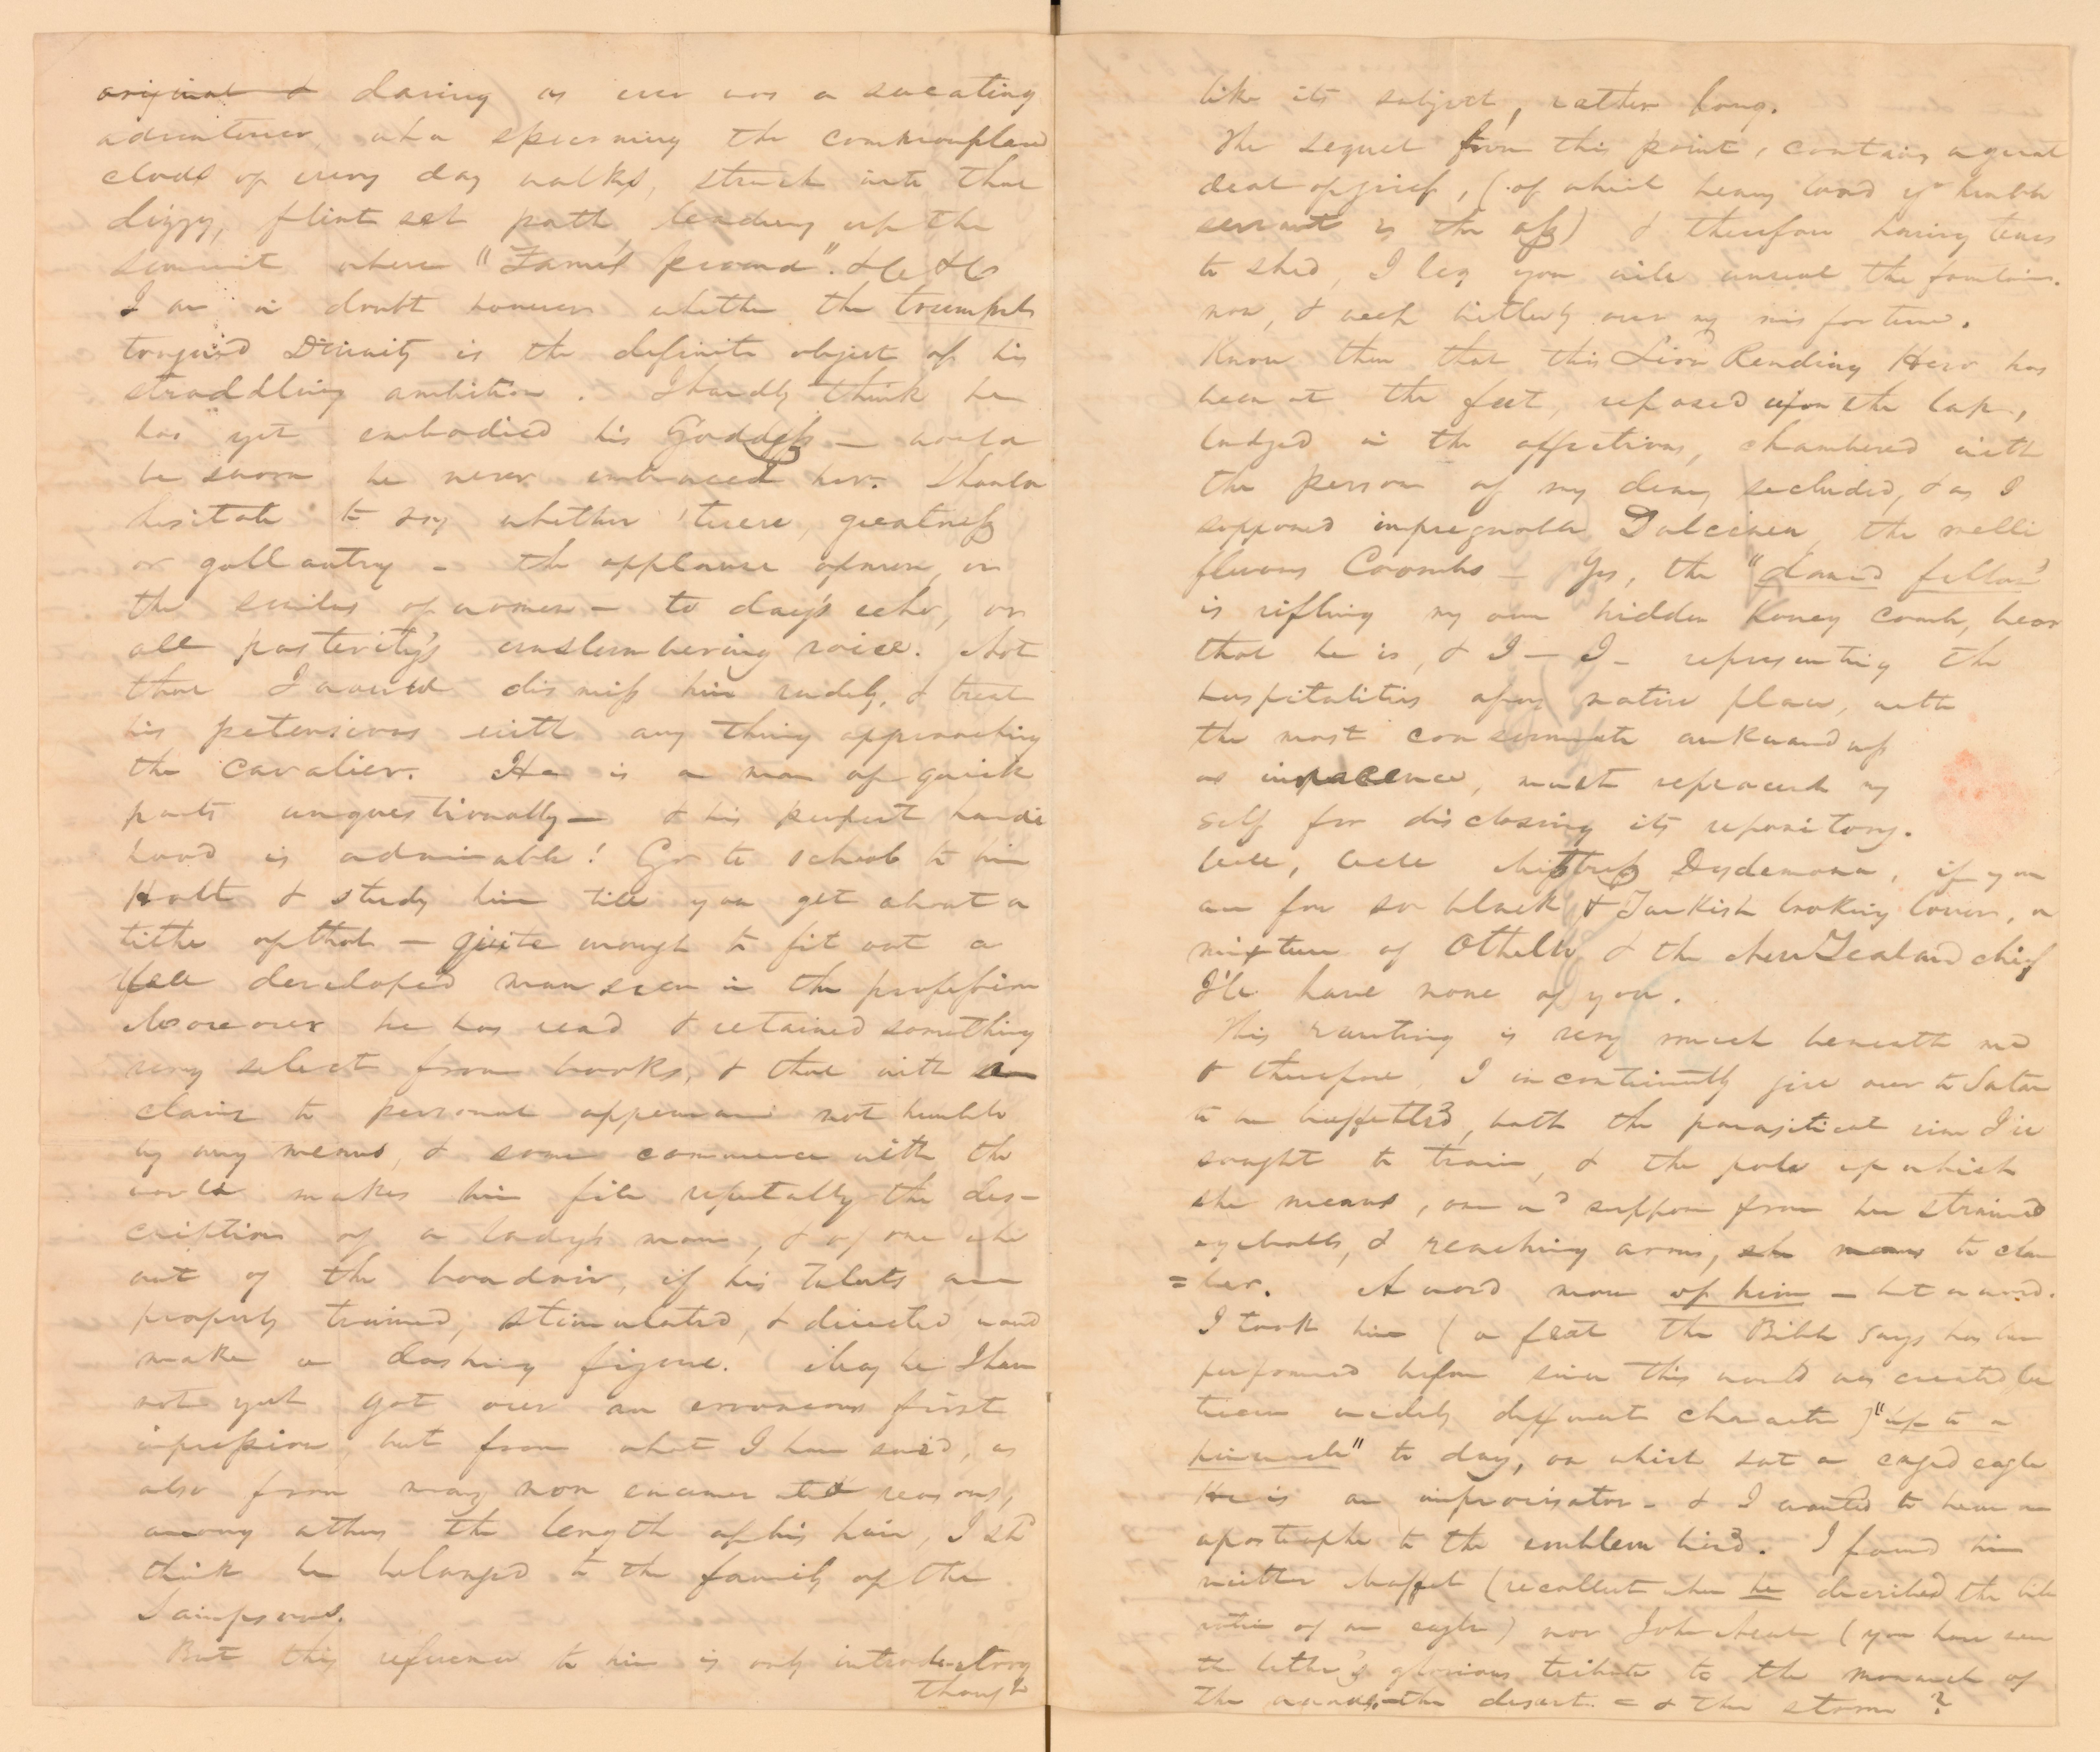 original & daring as ever was a sweating
adventurer who spurning the commonplace
clods of every day walks, struck into that
dizzy, flint set path leading up the
summit where "Fame's proud". &c &c
I am in doubt however whether the trumpet
tongued Divinity is the definite object of his
straddling ambition. I hardly think he
has yet embodied his Goddess — would
be sworn he never embraced her. Should
hesitate to say whether 'twere, greatness
or gallantry — the applause of men, or
the smiles of women — to day's echo, or
all posterity's unslumbering voice. Not
that I would dismiss him rudely, & treat
his pretensions with any thing approaching
the cavalier. He is a man of quick
parts unquestionally — & his perfect hardi
hood is admirable! Go to school to him
Holt & study him till you get about a
tithe of that — quite enough to fit out a
full developed man even in the profession
Moreover he has read & retained something
very select from books, & that with
claims to personal appearance not humble
by any means, & some commerce with the
world makes him fill reputably the des-
cription of a lady's man, & of one who
out of the boudoir, if his talents are
properly trained, stimulated, & directed would
make a dashing figure. May be I have
not yet got over an erroneous first
impression, but from what I have said, as
also from many non enumerated reasons,
among others the length of his hair, I shd
think he belonged to the family of the
Sampsons.
But this reference to him is only introductory
though
like its subject, rather long.
The sequel from this point, contains a great
deal of grief, (of which heavy load yr humble
servant is the ass) & therefore having tears
to shed, I beg you will unseal the fountains
now, & weep bitterly over my misfortune.
Know then that this Lion Rending Hero has
been at the feet, reposed upon the lap,
lodged in the affections, chambered with
the person of my deary secluded, & as I
supposed impregnable Dulcinea, the melli
fluous Coombs — Yes, the "damd fellow"
is rifling my own hidden honey comb, hear
that he is, & I — I — representing the
hospitalities of my native place, with
the most consummate awkwardness
or insolence, must reproach my
self for disclosing its repository.
Well, well Mistress Dydemona, if you
are for so black & Turkish looking lover, a
mixture of Othello & the New Zealand chief
I'll have none of you.
This ranting is very much beneath me
& therefore I incontinently give over to Satan
to be buffetted, both the parasitical vine I've
sought to train, & the pole up which
she means, one wd suppose from her strained
eyeballs, & reaching arms, she means to clam
=ber. A word more of him — but a word.
I took him (a feat the Bible says has been
performed before since this world was created be
tween widely different characters) "up to a
pinnacle" to day, on which sat a caged eagle
He is an improvisator — & I wanted to hear an
apostrophe to the emblem bird. I found him
neither Maffet (recollect when he described the libe
ration of an eagle) nor John Neal (you have seen
the latter's glorious tribute to the monarch of
the woods, — the desert — & the storm?